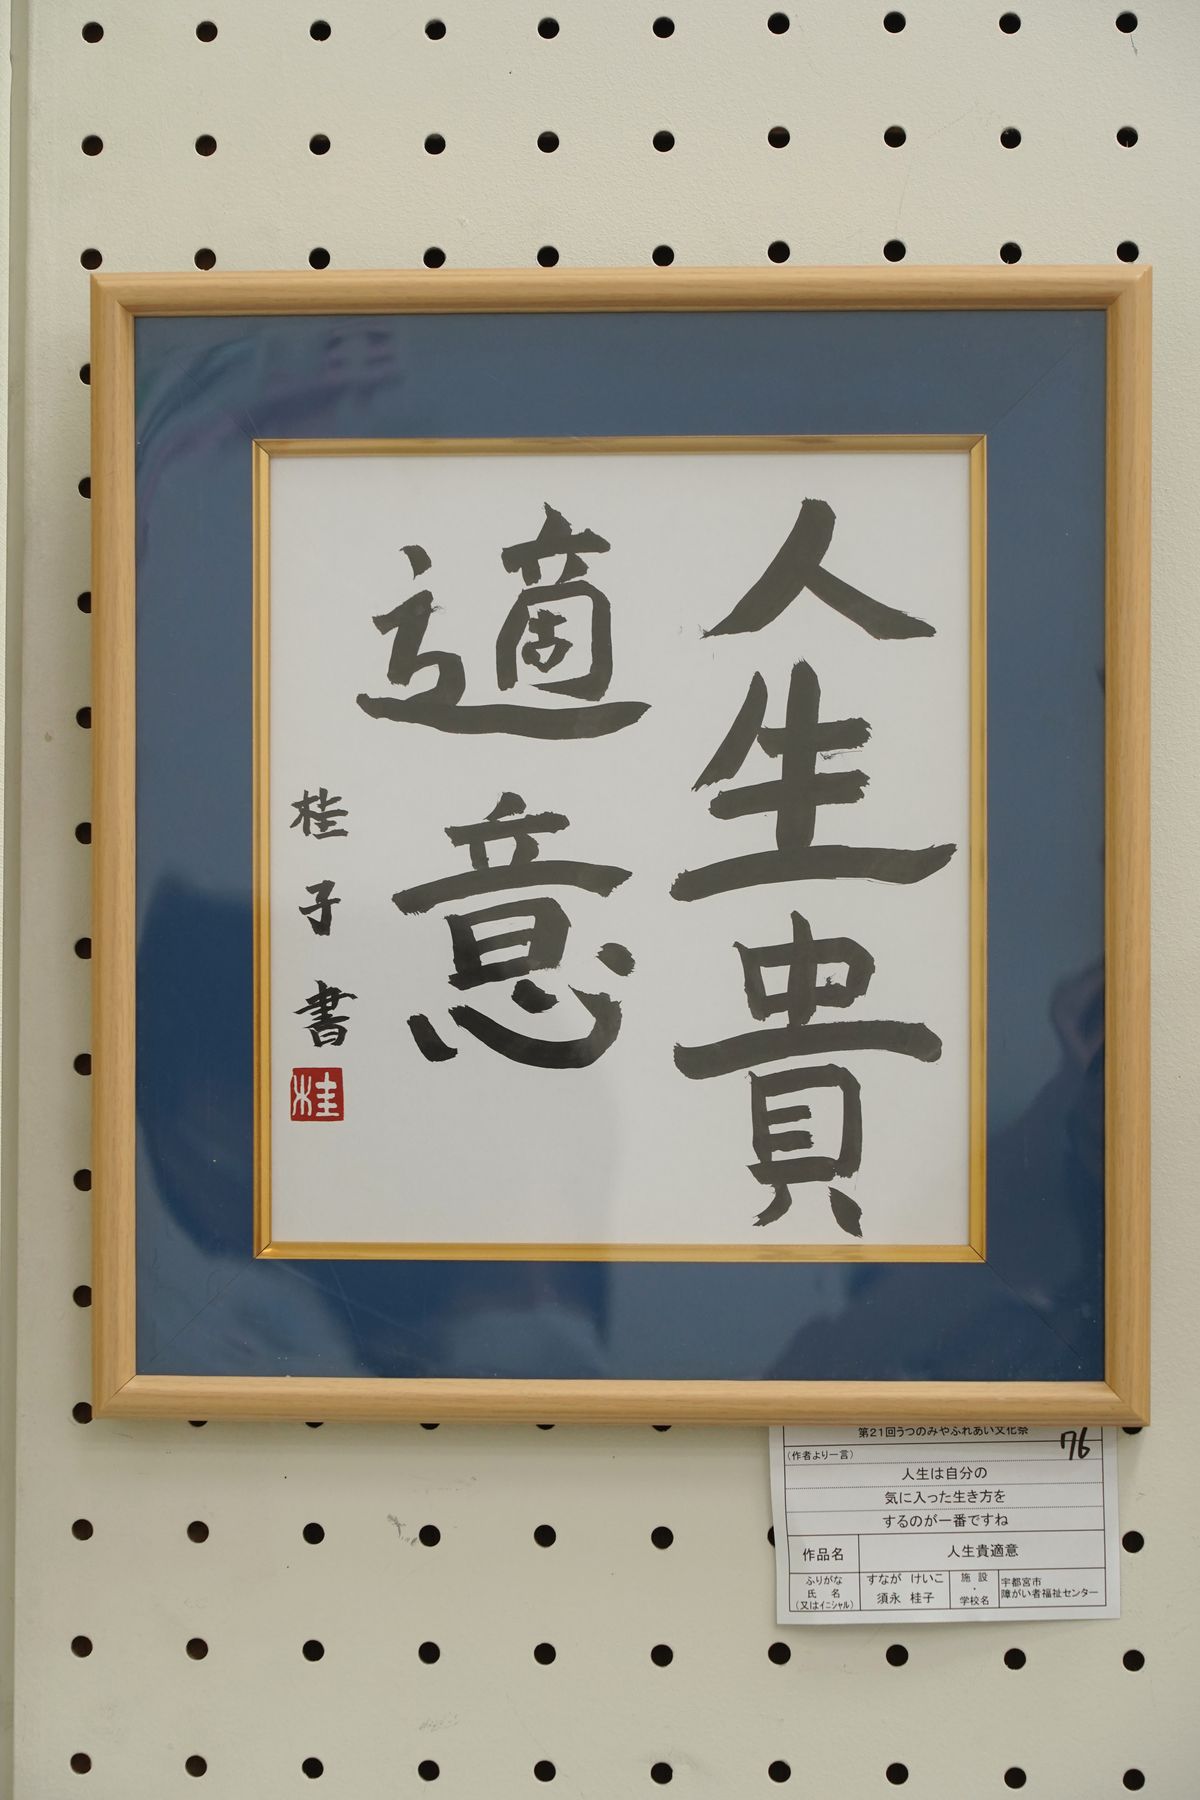 人生貴
適意
桂子書
桂
第21回うつのみやふれあい文化祭
76
(作者より一言)
人生は自分の
気に入った生き方を
するのが一番ですね
作品名 人生貴適意
ふりがな すなが けいこ
氏名 須永 桂子
(又はイニシャル)
施設・学校名
宇都宮市
障がい者福祉センター